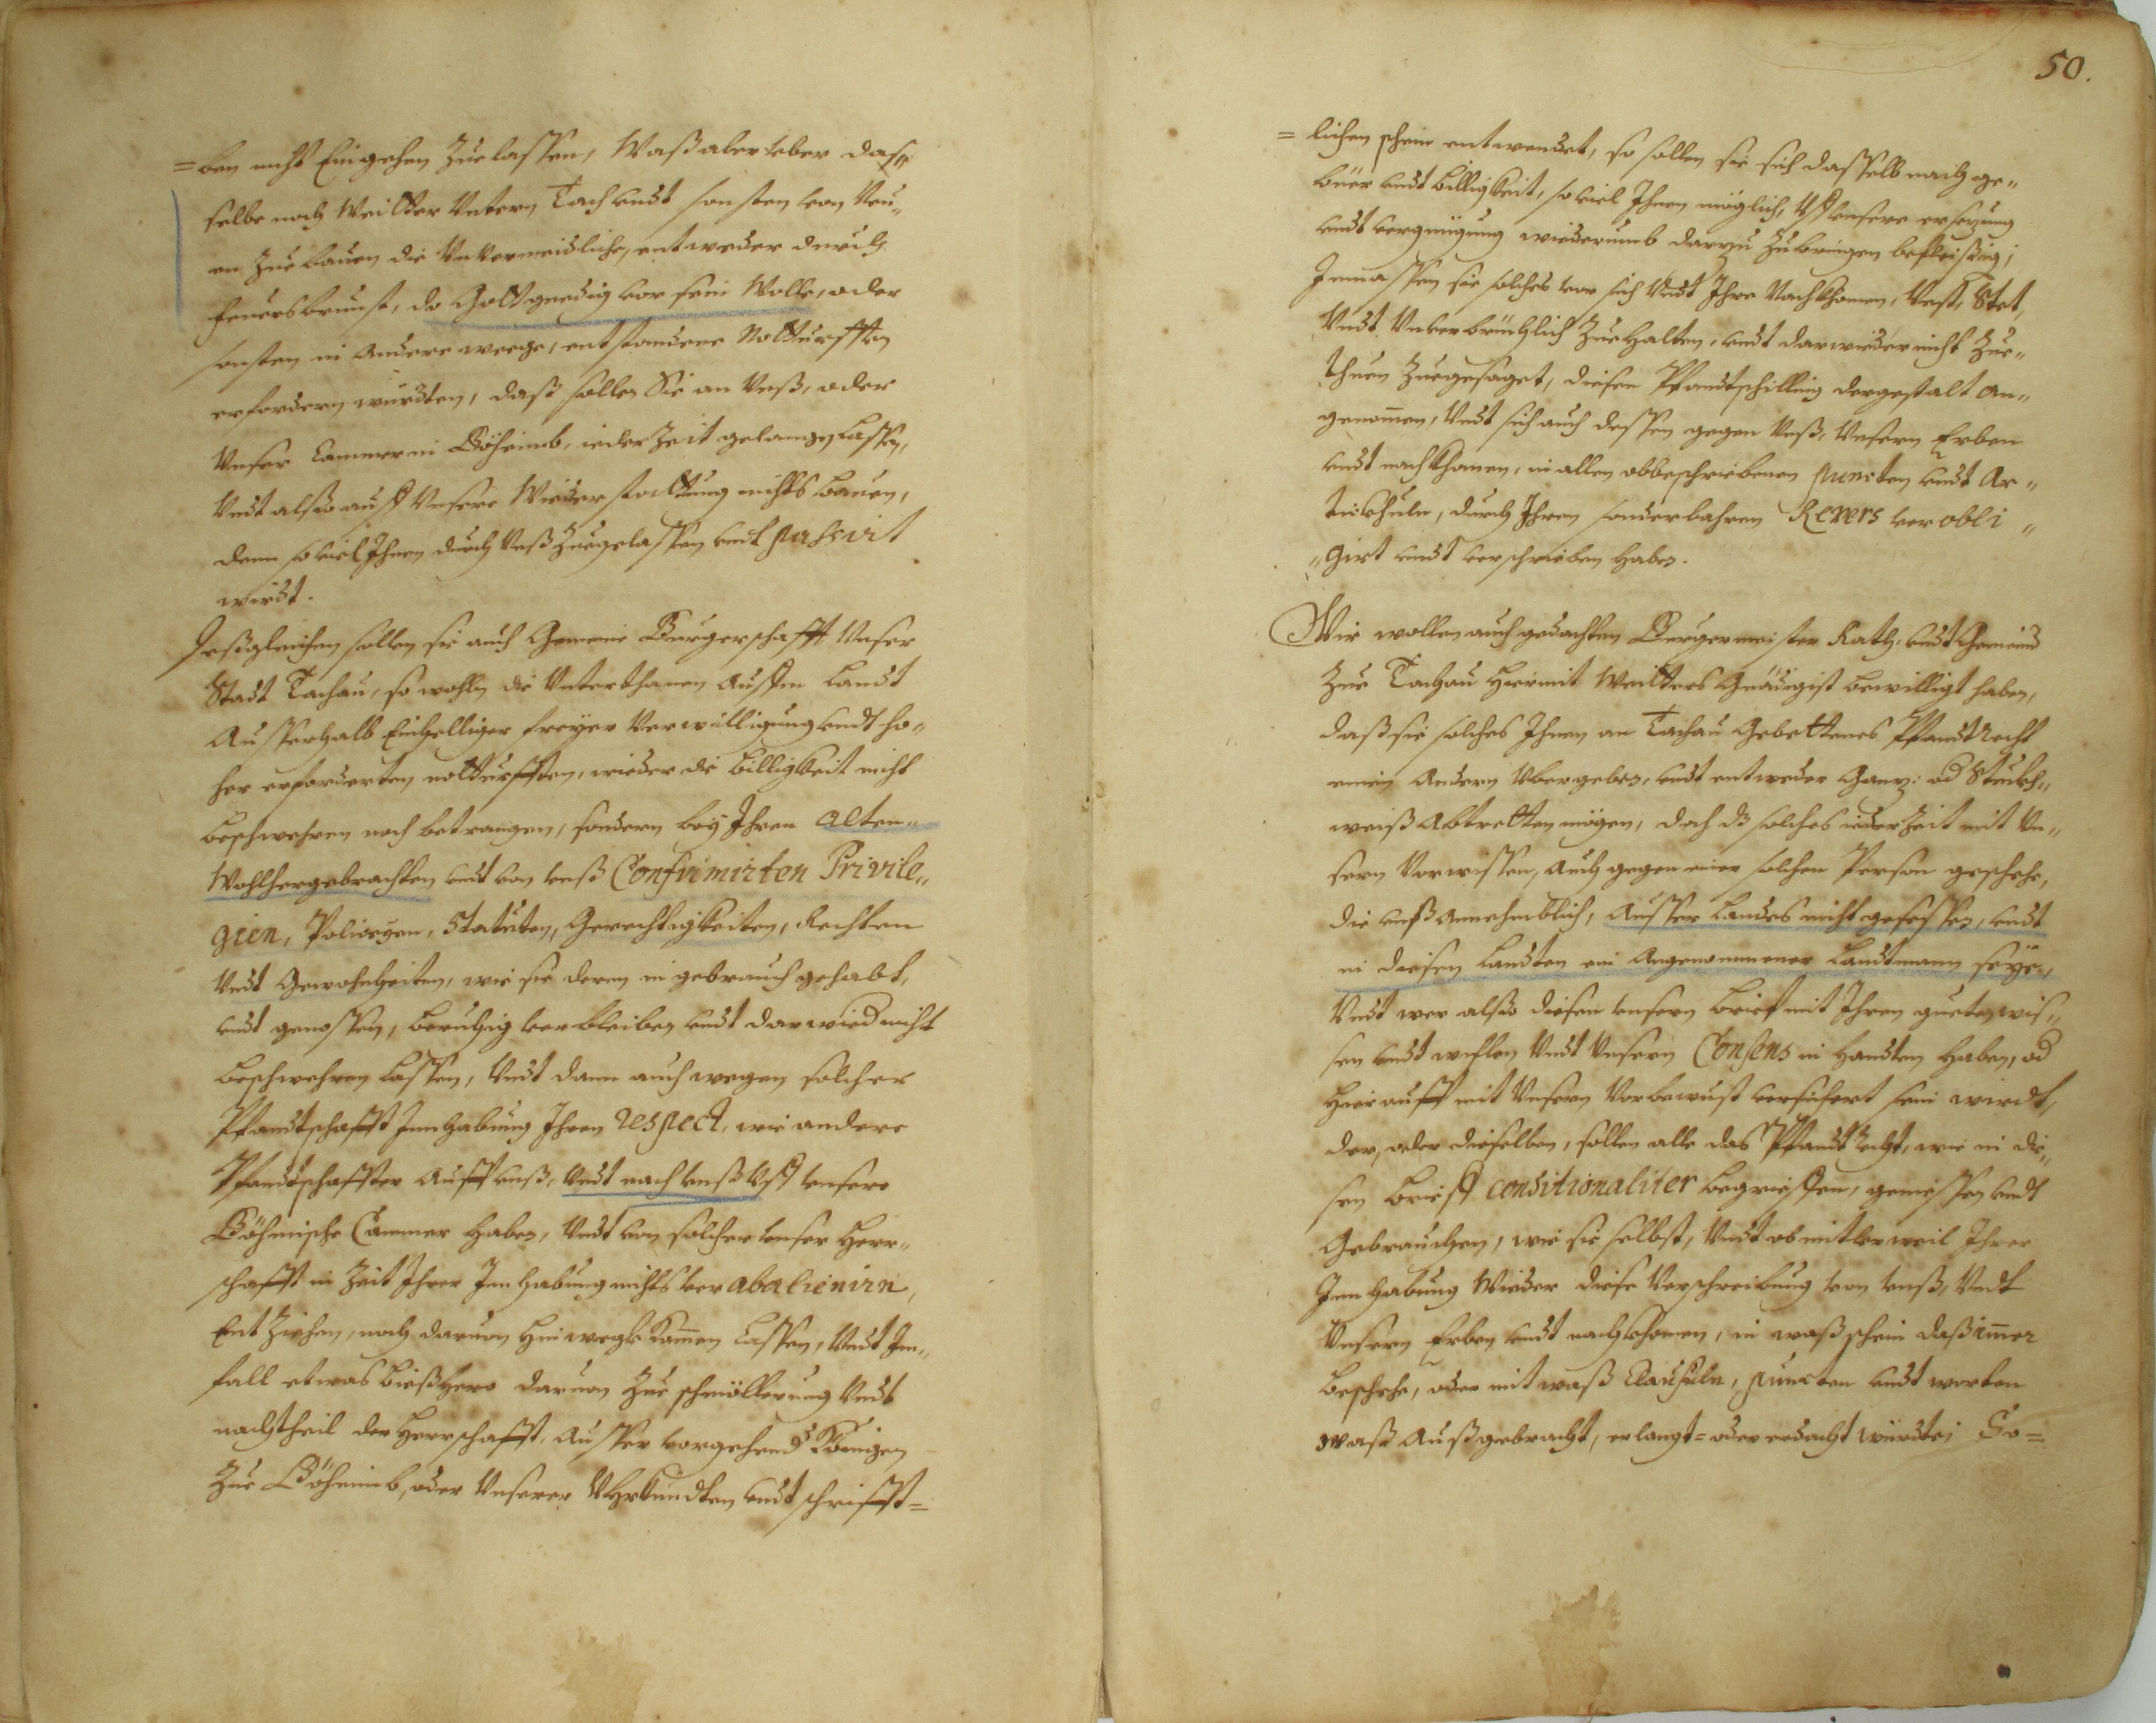 = ben nicht Eingehen Zue lassen, Waß aber uber das„
selbe noch Weitter Untern Tach undt sonsten von Neu„
en Zue bauen die Unvermeidliche, entweder durch
feuersbrunst, da Gott gnedig vor sein Wolle, oder
sonsten in Andere weege, entstandene Notturfften
erfordern würdten, daß sollen Sie an Unß, oder
Unser Cammer in Böheimb, ieder Zeit gelangen Lassen,
Undt also auff Unsere Wiederstattung nichts bauen,
dann so viel Ihnen durch Unß Zuegelassen undt passirt
wirdt.
Deßgleichen sollen sie auch Gemeine Burgerschafft Unser
Stadt Tachau, so wohln die Unterthanen Auffm Landt
Ausserhalb Einhelliger freyer Verwilligung undt ho„
her erforderten notturfften, wieder die Billigkeit nicht
beschwehren noch betrangen, sondern bey Ihren alten„
Wohlhergebrachten undt von unß Confirmirten Privile„
gien, Policeyen, Statuten, Gerechtigkeiten, Rechten
Undt Gewohnheiten, wie sie deren in gebrauch gehabt,
undt genossen, beruhig verbleiben undt darwied nicht
beschwehren lassen, Undt dann auch wegen solcher
Pfandtschafft Innhabung Ihren respect, wie andere
Pfandtschaffter Auff unß, Undt nach unß Uff unsere
Böhmische Cammer haben, Undt von solcher unser Herr„
schafft in Zeit Ihrer Innhabung nichts ver abalienirn,
Ent Ziehen, noch daruon hinwegk kommen Lassen, Undt Im„
fall etwas bießhero daruon Zue schmöllerung Undt
nachtheil der Herrschafft, Ausser vorgehends Königen
Zue Böheimb, oder Unserer Uhrkundten undt schrifft=
50.
= lichen schein entwendet, so sollen sie sich dasselb nach ge„
büer undt billigkeit, so viel Ihnen möglich, Uff unsere ersezung
undt vergnügung wiederumb darzu Zubringen befleißig;
Inmassen sie solches vor sich Undt Ihre Nachkhomen, Vest, Stet,
Undt Unverbrüchlich Zue Halten, undt darwieder nicht Zue„
thuen Zuegesaget, diesen Pfandtschilling dergestalt an„
genommen, Undt sich auch dessen gegen Unß, Unsern Erben
undt nachkhomen, in allen obbeschriebenen puncten undt Ar„
ticuln, durch Ihren sonderbahren Revers ver obli„
„girt undt verschrieben haben.
Wir wollen auch gedachten Burgermeister Rath, undt Gemeind
Zue Tachau hiermit Weitters Gnädigist bewilligt haben,
daß sie solches Ihnen an Tachau Gebettenes Pfandt Recht
einem Andern Ubergeben, undt entweder Ganz: od Stuckh„
weiß Abtretten mögen, doch dz solches ieder Zeit mit Un„
sern Vorwissen, Auch gegen einer solchen Person geschehe,
die unß annehmblich, Ausser Landes nicht gesessen, undt
in diesen Landten ein Angenommener Landtmann seye,
Undt wer also diesen unsern brief mit Ihren gueten wis„
sen undt willen Undt Unsern Consens in Handten haben, od
hierauff mit Unsern Vorbewust versichert sein wirdt,
der, oder dieselben, sollen alle das Pfandt Recht, wie in die„
sen brieff conditionaliter begrieffen, geniessen undt
Gebrauchen, wie sie selbst, Undt ob mitler weil Ihrer
Innhabung Wieder diese Verschreibung von unß, Undt
Unsern Erben undt nachkhomen, in waß schein daß immer
beschehe, oder mit waß Clausuln, puncten undt worten
waß Außgebracht, erlangt= oder erdacht würdte; So=